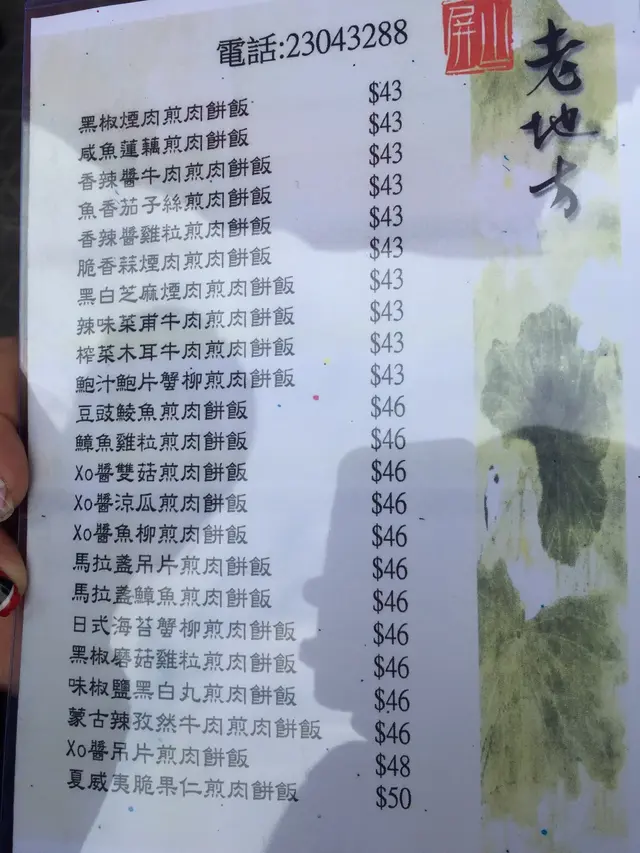 電話:23043288
屏山
老地方
黑椒煙肉煎肉餅飯 $43
咸魚蓮藕煎肉餅飯 $43
香辣醬牛肉煎肉餅飯 $43
魚香茄子絲煎肉餅飯 $43
香辣醬雞粒煎肉餅飯 $43
脆香蒜煙肉煎肉餅飯 $43
黑白芝麻煙肉煎肉餅飯 $43
辣味菜甫牛肉煎肉餅飯 $43
榨菜木耳牛肉煎肉餅飯 $43
鮑汁鮑片蟹柳煎肉餅飯 $43
豆豉鯪魚煎肉餅飯 $46
鱆魚雞粒煎肉餅飯 $46
Xo醬雙菇煎肉餅飯 $46
Xo醬涼瓜煎肉餅飯 $46
Xo醬魚柳煎肉餅飯 $46
馬拉盞吊片煎肉餅飯 $46
馬拉盞鱆魚煎肉餅飯 $46
日式海苔蟹柳煎肉餅飯 $46
黑椒磨菇雞粒煎肉餅飯 $46
味椒鹽黑白丸煎肉餅飯 $46
蒙古辣孜然牛肉煎肉餅飯 $46
Xo醬吊片煎肉餅飯 $48
夏威夷脆果仁煎肉餅飯 $50